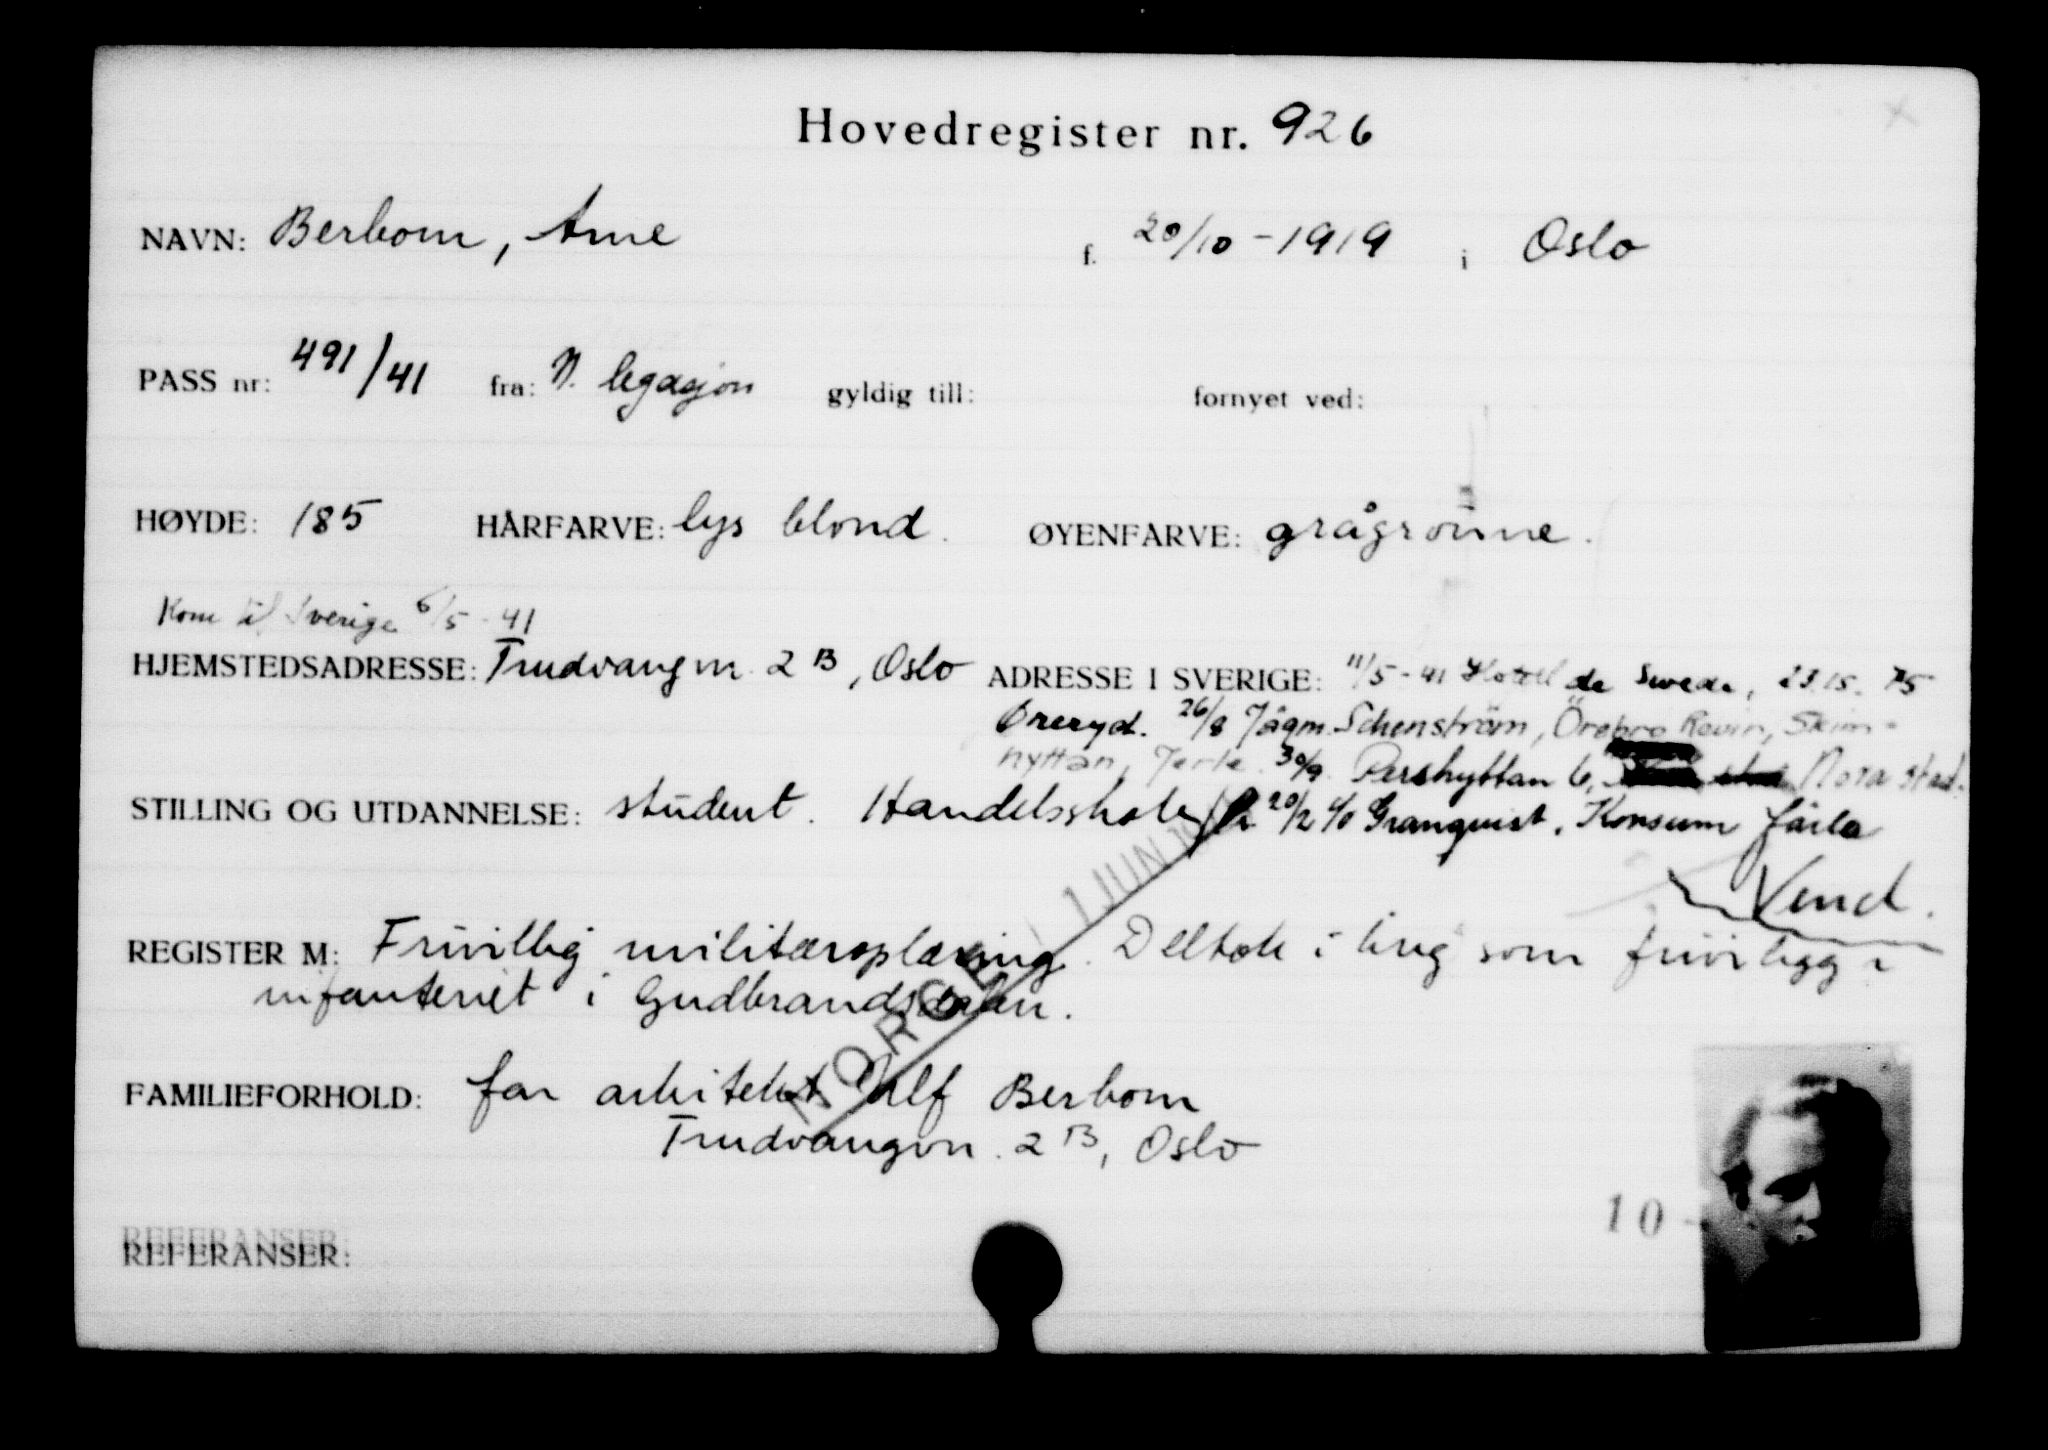 Hovedregister nr. 926
NAVN: Berbom, Arne f. 20/10 - 1919 i Oslo
PASS nr: 491/41 fra: N. legasjon gyldig till: fornyet ved:
HØYDE: 185 HÅRFARVE: lys blond. ØYENFARVE: grågrønne.
Kom til Sverige 6/5 - 41
HJEMSTEDSADRESSE: Trudvangvn. 2 B, Oslo ADRESSE I SVERIGE: 11/5 - 41 Hotell de Suede,
Öreryd. 26/8 Jägm. Schenström, Örebro Revir, Skrim-
hyttan, Jerle. 30/9 Pershyttan 6, Nora stad.
STILLING OG UTDANNELSE: student. Handelsskole 20/2 c/o Granquist, Konsum Järla
Vend.
1 JUN 19
REGISTER M: Frivillig militæroplæring. Deltok i krig som frivillig i
infanteriet i Gudbrandsdalen.
NORGE
FAMILIEFORHOLD: far arkitekt Ulf Berbom
Trudvangvn. 2 B, Oslo
10 -
REFERANSER:
REFERANSER: